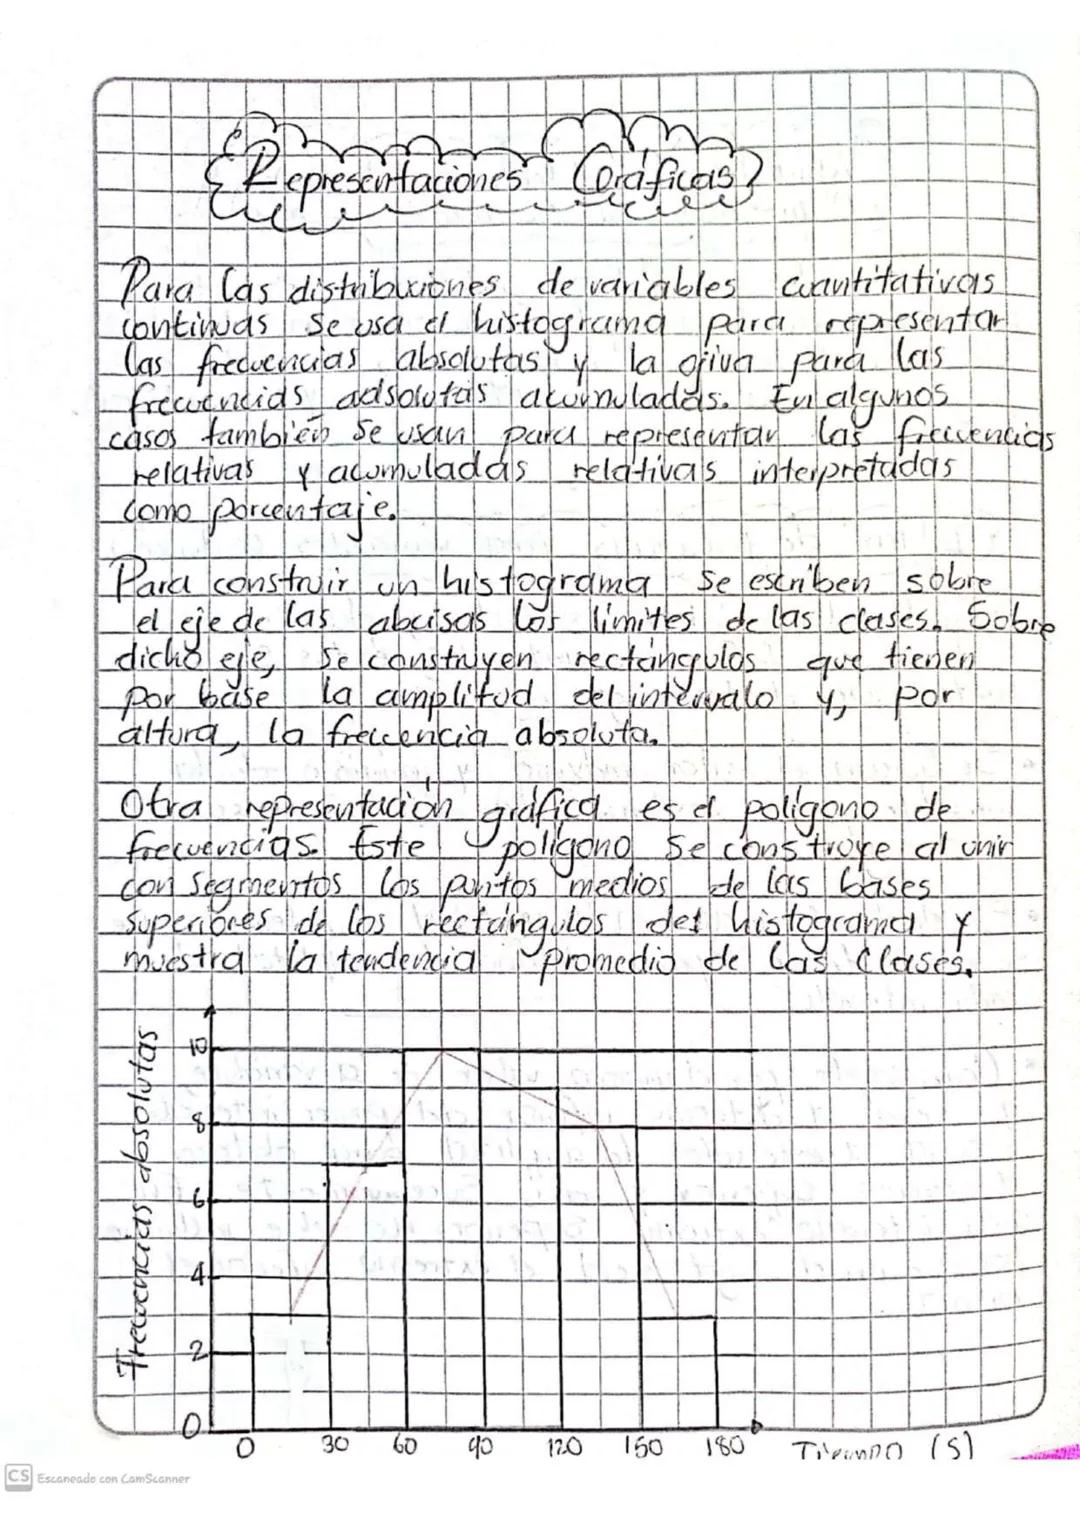 Representaciones Gráficas
Para las distribuciones de variables cuantitativas
continuas se usa el histograma para representar
las frecuencias absolutas y la ojiva para las
frecuencias adsolutas acumuladas. En algunos
casos también se usan para representar las frecuencias
relativas y acumuladas relativas interpretadas
como porcentaje.
Para construir un histograma se escriben sobre
el eje de las abcisas los límites de las clases. Sobre
dicho eje, se construyen rectángulos que tienen
por base la amplitud del intervalo y, por
altura, la frecuencia absoluta.
Otra representación gráfica es el polígono de
frecuencias. Este polígono se construye al unir
con segmentos los puntos medios de las bases
superiores de los rectángulos del histograma y
muestra la tendencia promedio de las clases.
Frecuencias absolutas
10
8
6
4
2
0
0 30 60 90 120 150 180 Tiempo (s)
CS Escaneado con CamScanner